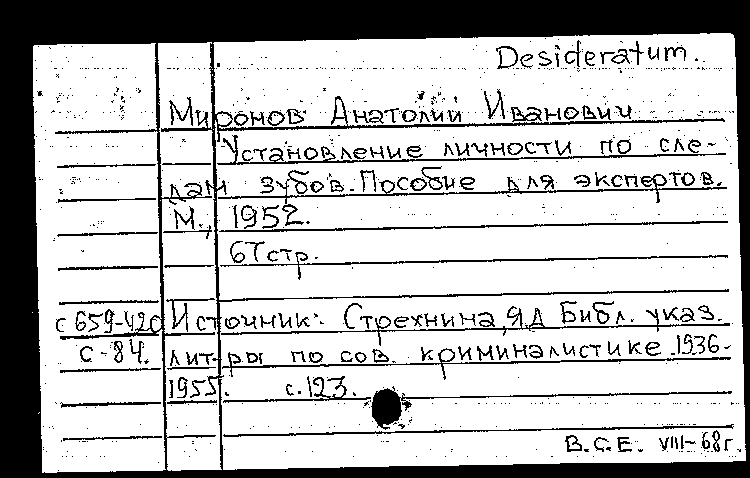 Desideratum.
Миронов Анатолий Иванович
Установление личности по сле-
дам зубов. Пособие для экспертов.
М., 1952.
67 стр.
с 659-420 Источник: Стрехнина, Я.Д Библ. указ.
с-84. лит-ры по сов. криминалистике 1936-
1955. с.123.
В.С.Е. VIII-68г.